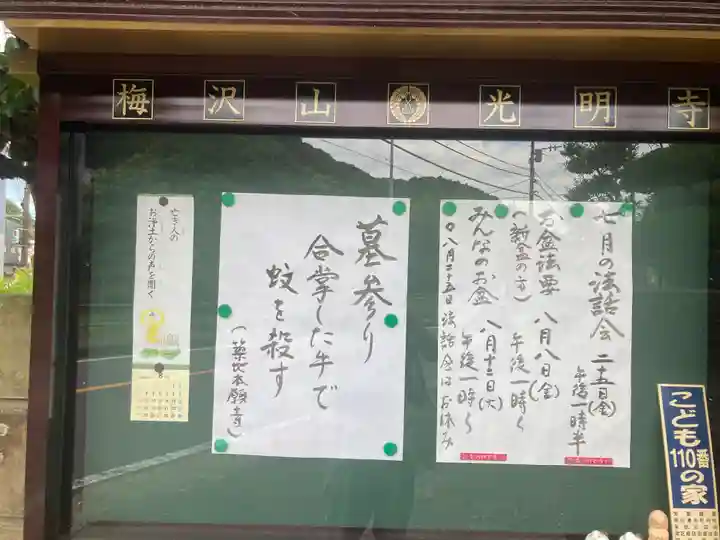 梅沢山 光明寺
七月の法話会 二五日(金)
午後一時半
お盆法要 八月八日(金)
(新盆の方) 午後一時〜
みんなのお盆 八月十二日(火)
午後一時〜
○八月二十五日法話会はお休み
墓参り
合掌した手で
蚊を殺す
(築地本願寺)
亡き人の
お浄土からの声を聞く
8
こども
110番
の家